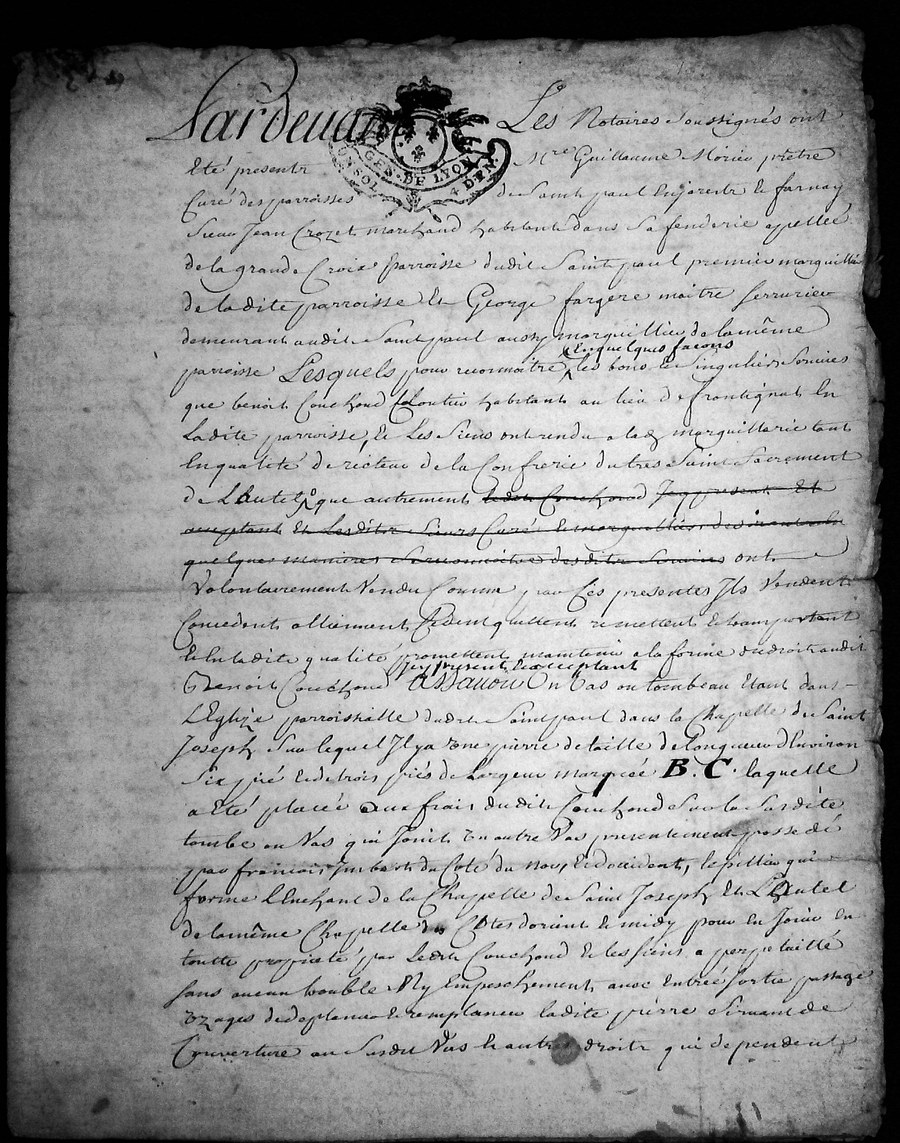 Pardevant Les Notaires soussignés ont
GEN. DE LYON
UN SOL 4 DEN.
Eté presents Mre Guillaume Morieu prêtre
Curé des parroisses de Saint paul Enjarest et farnay
Sieur Jean Crozet marchand habitant dans Sa fenderie appellée
de la grande Croix parroisse dudit Saint paul premier marguillier
de ladite parroisse Et George fargere maitre Serrurier
demeurant audit Saint paul aussy marguillier de la même
En quelques facons
parroisse Lesquels pour reconnoitre les bons et Singuliers Services
que benoit Couchoud habitant au lieu de frontignat En
Ladite parroisse, Et Les Siens ont rendu a lad marguillerie tant
En qualité de recteur de la Confrerie du tres Saint Sacrement
de L'autel que autrement ledit Couchoud Icy present Et
acceptant Et Lesdits Sieurs Curé Et marguilliers
quelques manieres desdits Services ont
Volontairement Vendu Comme par Ces presentes Ils Vendent
Concedent allienent Cedent quittent remettent Et transportent
Et En ladite qualité promettent maintenir a la forme du droit audit
Icy present Et acceptant
Benoit Couchoud Assavoir Un Vas ou tombeau Etant dans
L'Eglize parroissialle dudit Saint paul dans la Chapelle de Saint
Joseph Sur lequel Il y a une pierre de taille de longueur d'Environ
Six pié et de trois piés de Largeur marquée B. C. laquelle
a Eté placée aux frais dudit Couchoud Sur la Susdite
tombe ou Vas qui Joint Un autre Vas presentement possedé
par francois Imbert du Coté du nord, Et occident, le pillier qui
forme L'Enchant de la Chapelle de Saint Joseph Et L'Autel
de la même Chapelle des Cotés dorient Et midy pour En Jouir En
toutte proprieté par Ledit Couchoud Et les siens a perpetuitté
Sans aucun trouble Ny Empeschement, avec Entrée Sortie passage
Uzages de deplacer Et remplacer ladite pierre Servant de
Couverture au Susdit Vas Et autres droits qui dependent